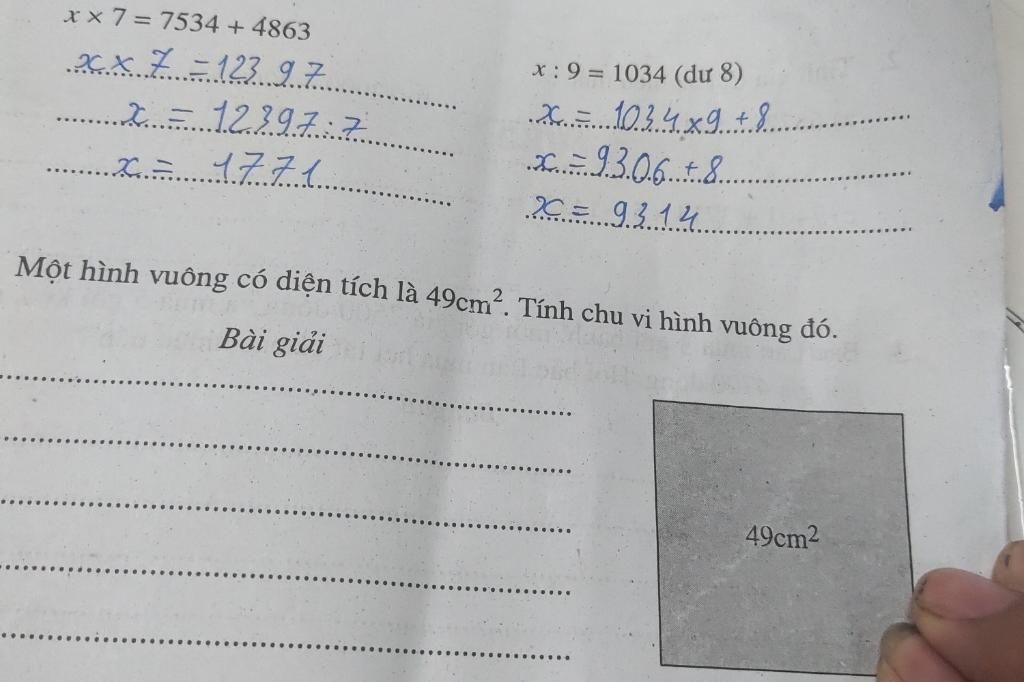 x × 7 = 7534 + 4863
x x 7 = 12397
x = 12397 : 7
x = 1771
x : 9 = 1034 (dư 8)
x = 1034 x 9 + 8
x = 9306 + 8
x = 9314
Một hình vuông có diện tích là 49cm². Tính chu vi hình vuông đó.
Bài giải
49cm²